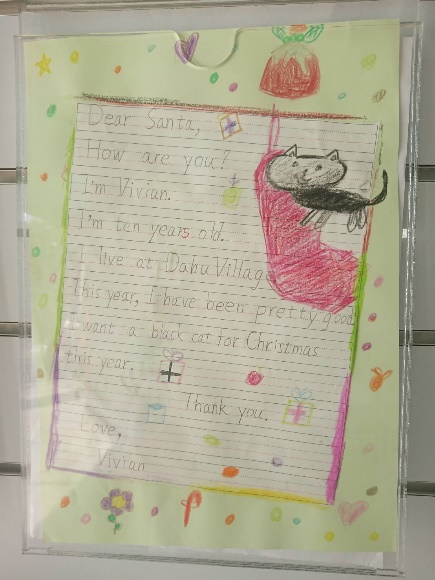 Dear Santa,
How are you?
I'm Vivian.
I'm ten years old.
I live at Dahu Village
This year, I have been pretty good
I want a black cat for Christmas
this year.
Thank you.
Love,
Vivian